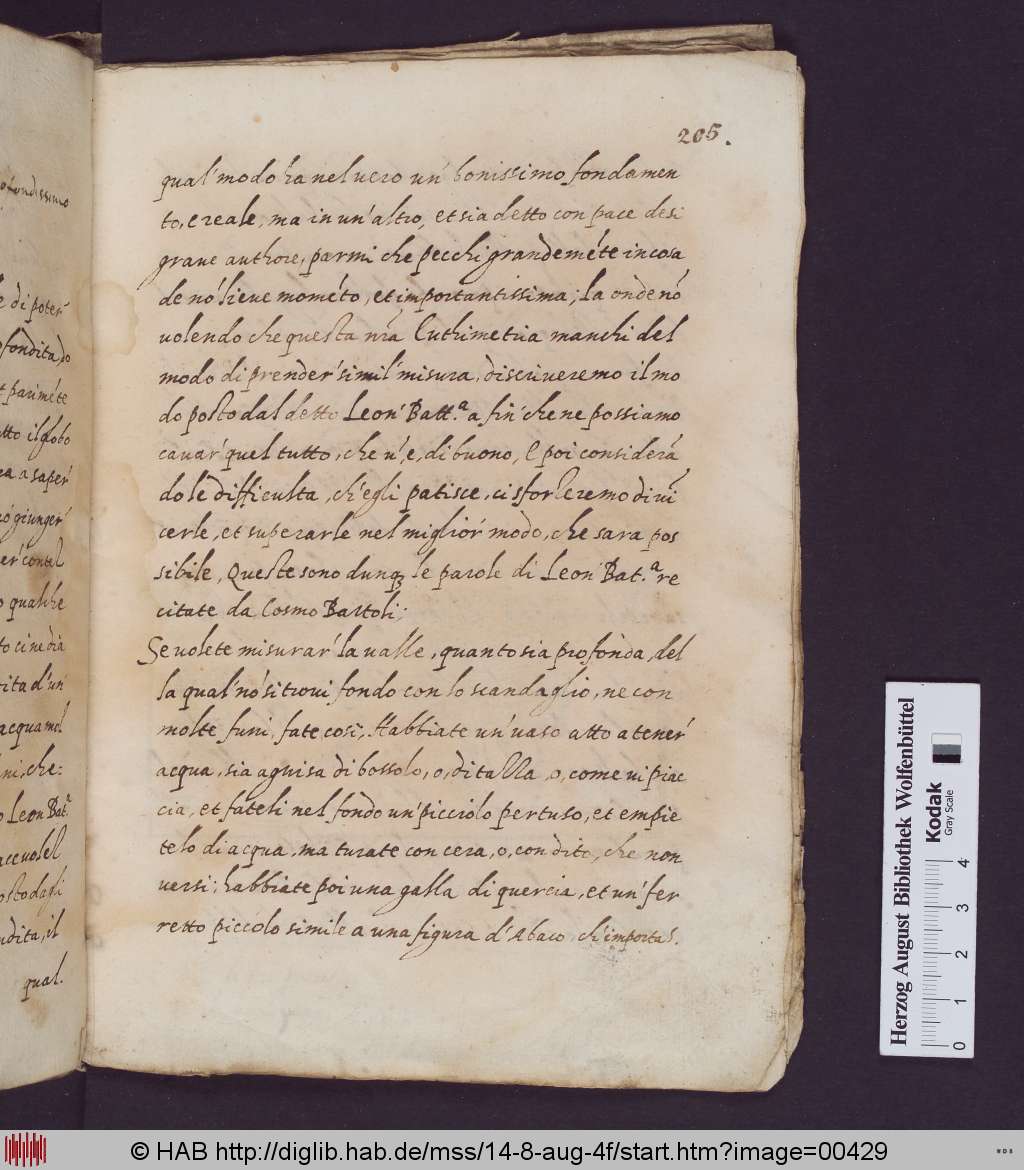 ofondissimo
e di poter'
ofondita, do
t parimẽte
utto il globo
ra a saper'
nõ giunger'
er' con tal
o qualche
to ci ne dia
rita d'un
acqua mol
ni, che:
o Leon Bat.ª
acevolel
osto dagli
ndita, il
qual.
205.
qual' modo ha nel uero un' bonissimo fondamen
to, e reale, ma in un' altro, et sia detto con pace desi
graue authore, parmi che pecchi grandemẽte in cosa
de nõ lieue momẽto, et importantissima; La onde nõ
uolendo che questa nrã Euthimetria manchi del
modo di prender' simil' misura, discriueremo il mo
do posto dal detto Leon' Batt.ª a fin' che ne possiamo
cauar' quel tutto, che u'e, di buono, E poi considerã
do le difficulta, ch'egli patisce, ci sforzeremo di uĩ
cerle, et superarle nel miglior' modo, che sara pos
sibile, Queste sono dunqꝫ le parole di Leon' Bat.ª re
citate da Cosmo Bartoli;
Se uolete misurar' la ualle, quanto sia profonda, del
la qual' nõ si troui fondo con lo scandaglio, ne con
molte funi, fate cosi; Habbiate un' uaso atto a tener'
acqua, sia aguisa di bossolo, o, di tazza, o, come ui piac
cia, et fateli nel fondo un' picciolo pertuso, et empie
telo di acqua, ma turate con cera, o, con dito, che non
uersi; habbiate poi una galla di quercia, et un' fer
retto picciolo simile a una figura d'Abaco ch'importa 5.
Herzog August Bibliothek Wolfenbüttel
Kodak
Gray Scale
0 1 2 3 4
© HAB http://diglib.hab.de/mss/14-8-aug-4f/start.htm?image=00429